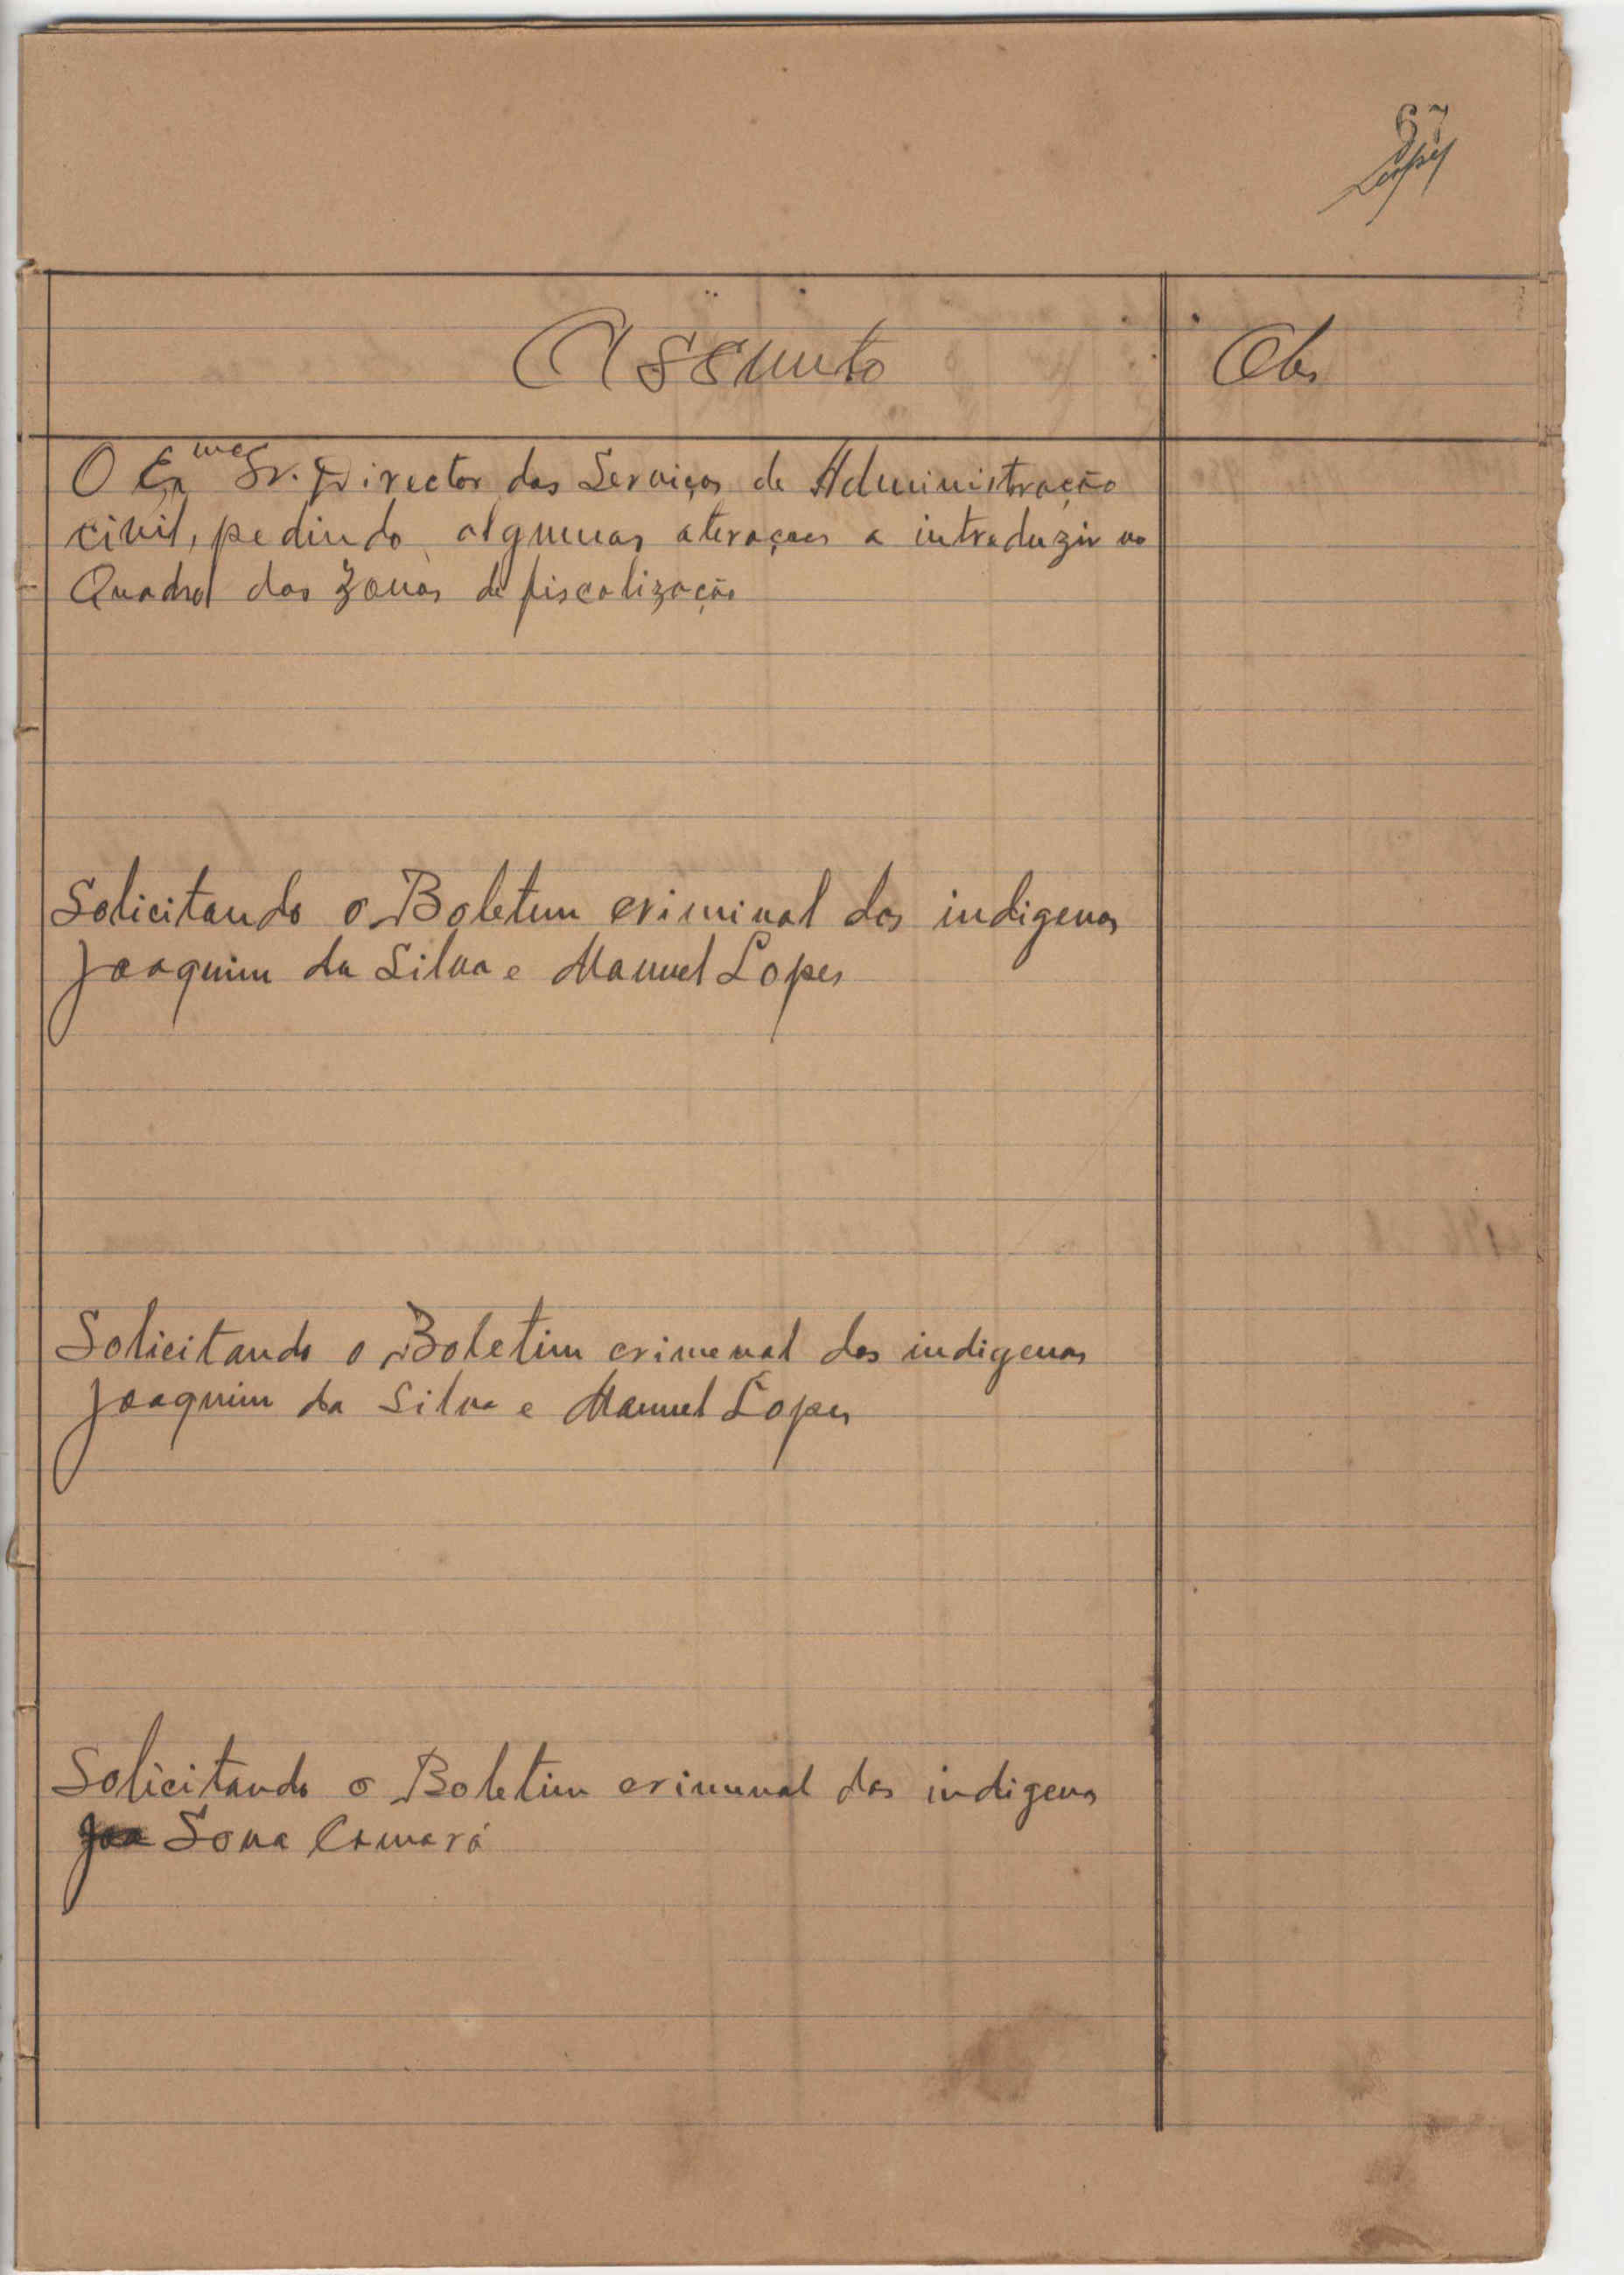 67
Lopes
Assunto
Obs
O Exmo Sr. Director dos Serviços de Administração
civil, pedindo algumas aterações a intreduzir no
Quadro das zonas de fiscalização
Solicitando o Boletim criminal dos indigenas
Joaquim da Silva e Manuel Lopes
Solicitando o Boletim crimenal dos indigenas
Joaquim da Silva e Manuel Lopes
Solicitando o Boletim criminal dos indigena
Sona Camará